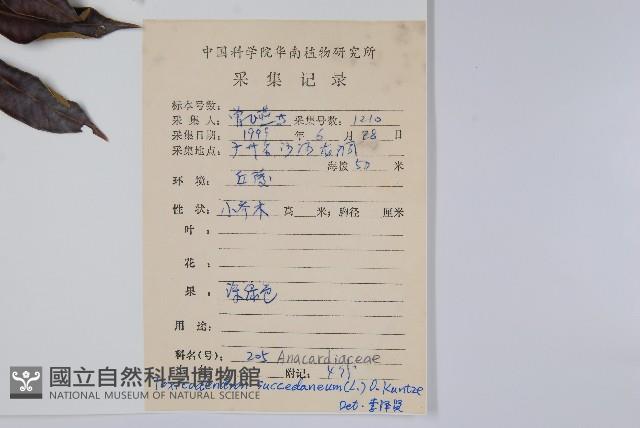 中国科学院华南植物研究所
采 集 记 录
标本号数:
采 集 人: 采集号数: 1210
采集日期: 1999 年 6 月 28 日
采集地点:
海拨 50 米
环 境: 丘陵
性 状: 小乔木 高 米; 胸径 厘米
叶 :
花 :
果 : 深绿色
用 途:
科名(号): 205 Anacardiaceae
附记:
Toxicodendron succedaneum (L.) O. Kuntze
Det. 李泽贤
國立自然科學博物館
NATIONAL MUSEUM OF NATURAL SCIENCE